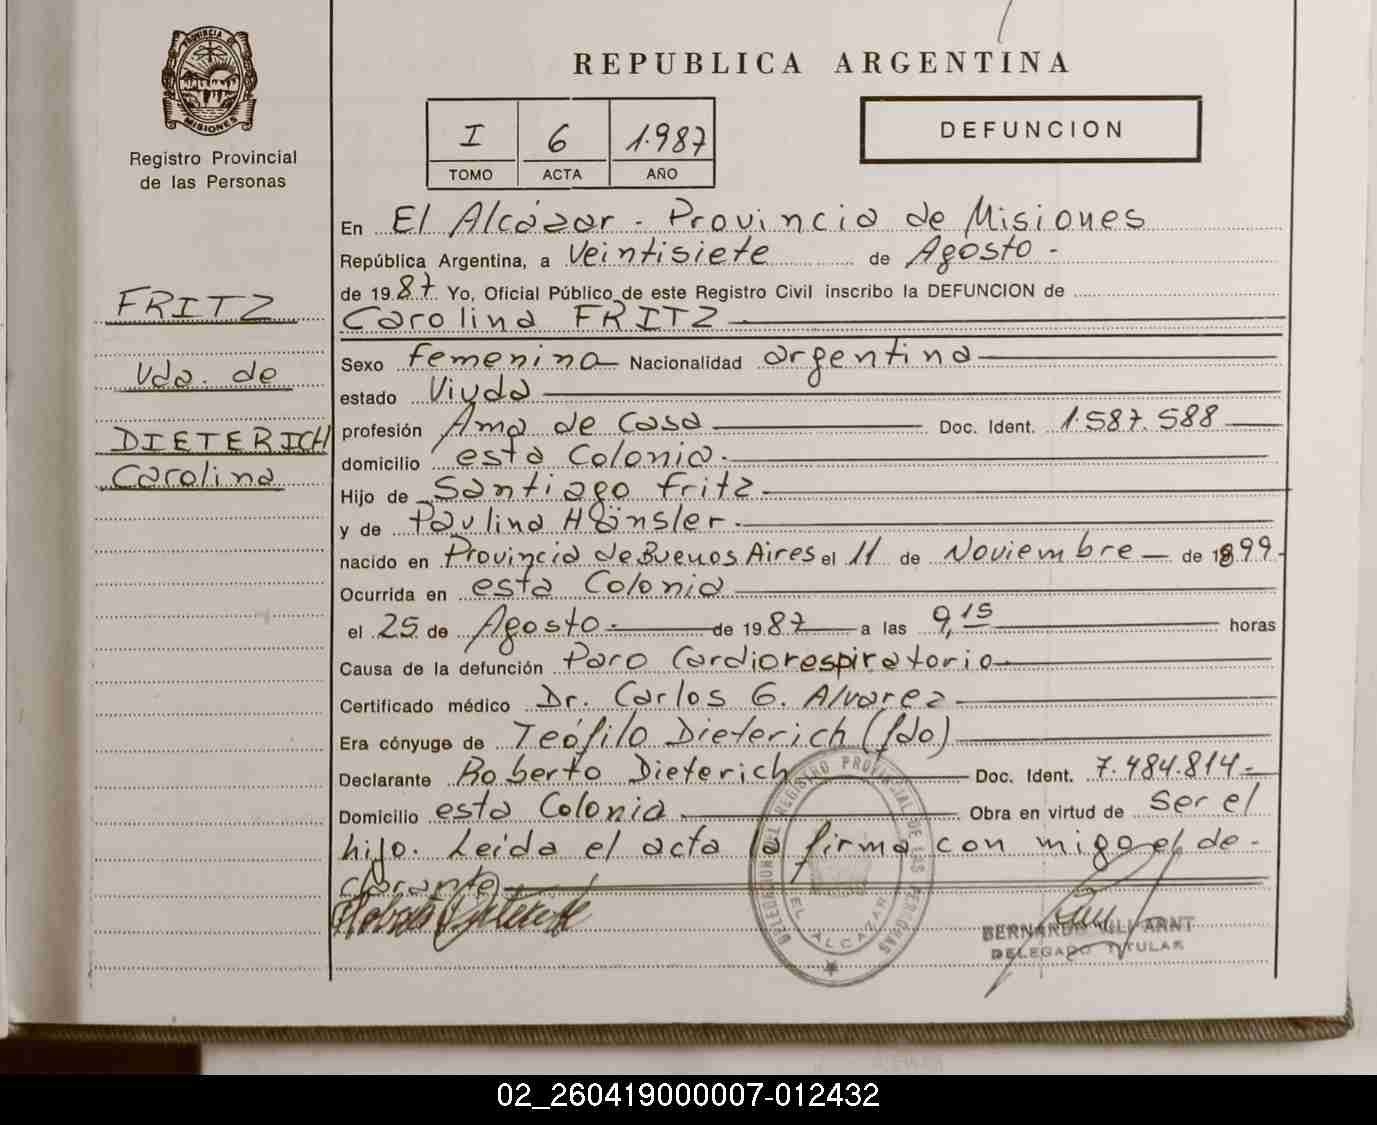 PROVINCIA DE
MISIONES
Registro Provincial
de las Personas
FRITZ
Vda. de
DIETERICH
Carolina
REPUBLICA ARGENTINA
I 6 1.987
TOMO ACTA AÑO
DEFUNCION
En El Alcázar - Provincia de Misiones
República Argentina, a Veintisiete de Agosto -
de 1987 Yo, Oficial Público de este Registro Civil inscribo la DEFUNCION de
Carolina FRITZ
Sexo femenino Nacionalidad argentina
estado Viuda
profesión Ama de Casa Doc. Ident. 1.587.588
domicilio esta Colonia.
Hijo de Santiago Fritz
y de Paulina Hänsler.
nacido en Provincia de Buenos Aires el 11 de Noviembre de 1899.
Ocurrida en esta Colonia
el 25 de Agosto. de 1987 a las 9,15 horas
Causa de la defunción Paro Cardiorespiratorio
Certificado médico Dr. Carlos G. Alvarez
Era cónyuge de Teófilo Dieterich (fdo)
Declarante Roberto Dieterich Doc. Ident. 7.484.814-
Domicilio esta Colonia Obra en virtud de ser el
hijo. Leida el acta la firma con migo el de-
clarante
DELEGACION DEL REGISTRO PROVINCIAL DE LAS PERSONAS
EL ALCAZAR
BERNARDO ARNT
DELEGADO TITULAR
02_260419000007-012432